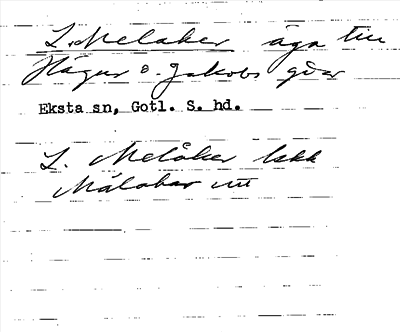 L. Melaker äga till
Hägur o. Jakobs gdar
Eksta sn, Gotl. S. hd.
L. Melåker lskk
Målakar utt